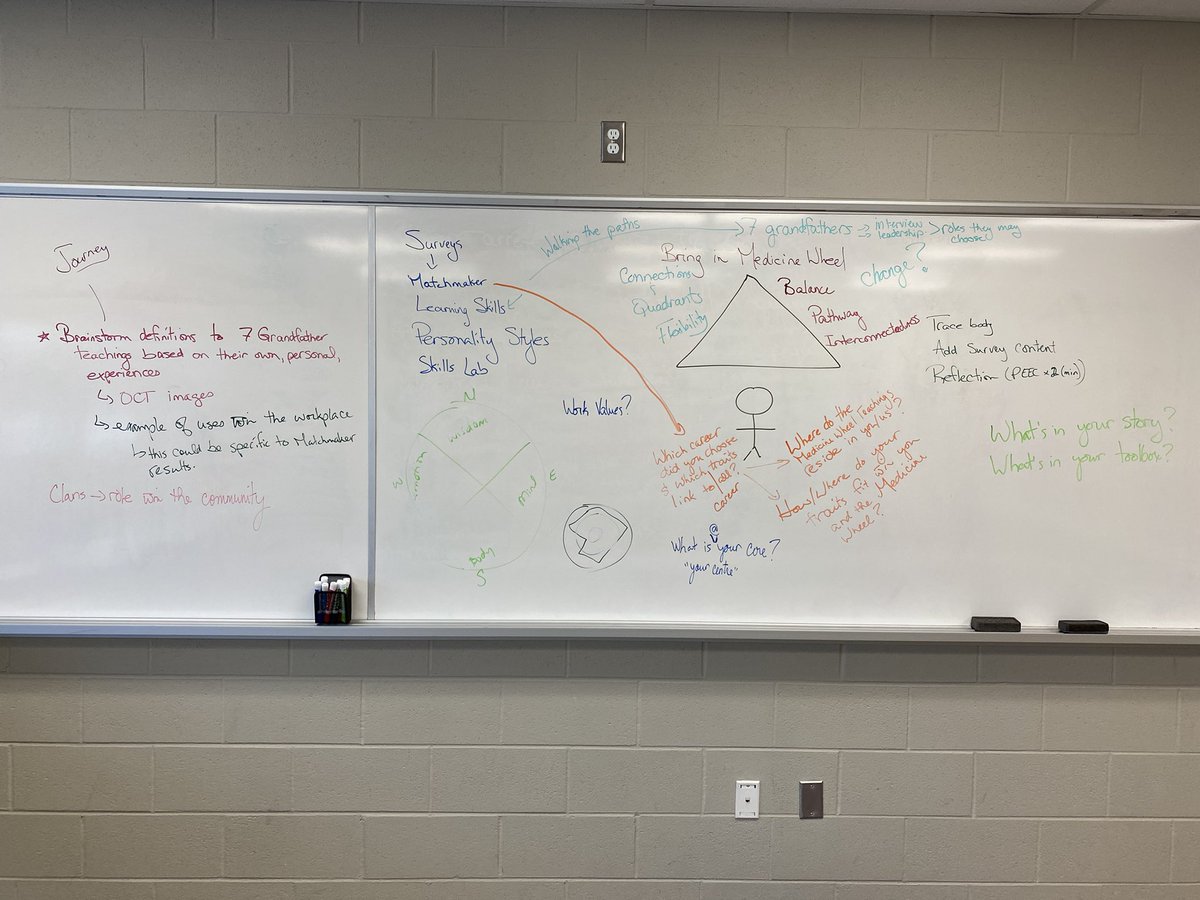 Journey
★ Brainstorm definitions to 7 Grandfather
teachings based on their own, personal,
experiences
↳ OCT images
↳ example of uses w/in the workplace
↳ this could be specific to Matchmaker
results.
Clans → role w/in the community
Surveys
↓
Matchmaker
Learning Skills
Personality Styles
Skills Lab
Walking the paths
7 grandfathers → interview
leadership > roles they may
choose
Change?
Bring in Medicine Wheel
Connections
&
Quadrants
Flexibility
Balance
Pathway
Interconnectedness
Trace body
Add Survey content
Reflection (PEEC x 2 (min))
What's in your story?
What's in your toolbox?
Work Values?
N
wisdom
E
mind
Body
S
W
Which career
did you choose
& which traits
link to
career
Where do the
Medicine Wheel Teachings
reside in you/us?
How/Where do your
traits fit w/in you
and the Medicine
Wheel?
What is @ your core?
"your centre"